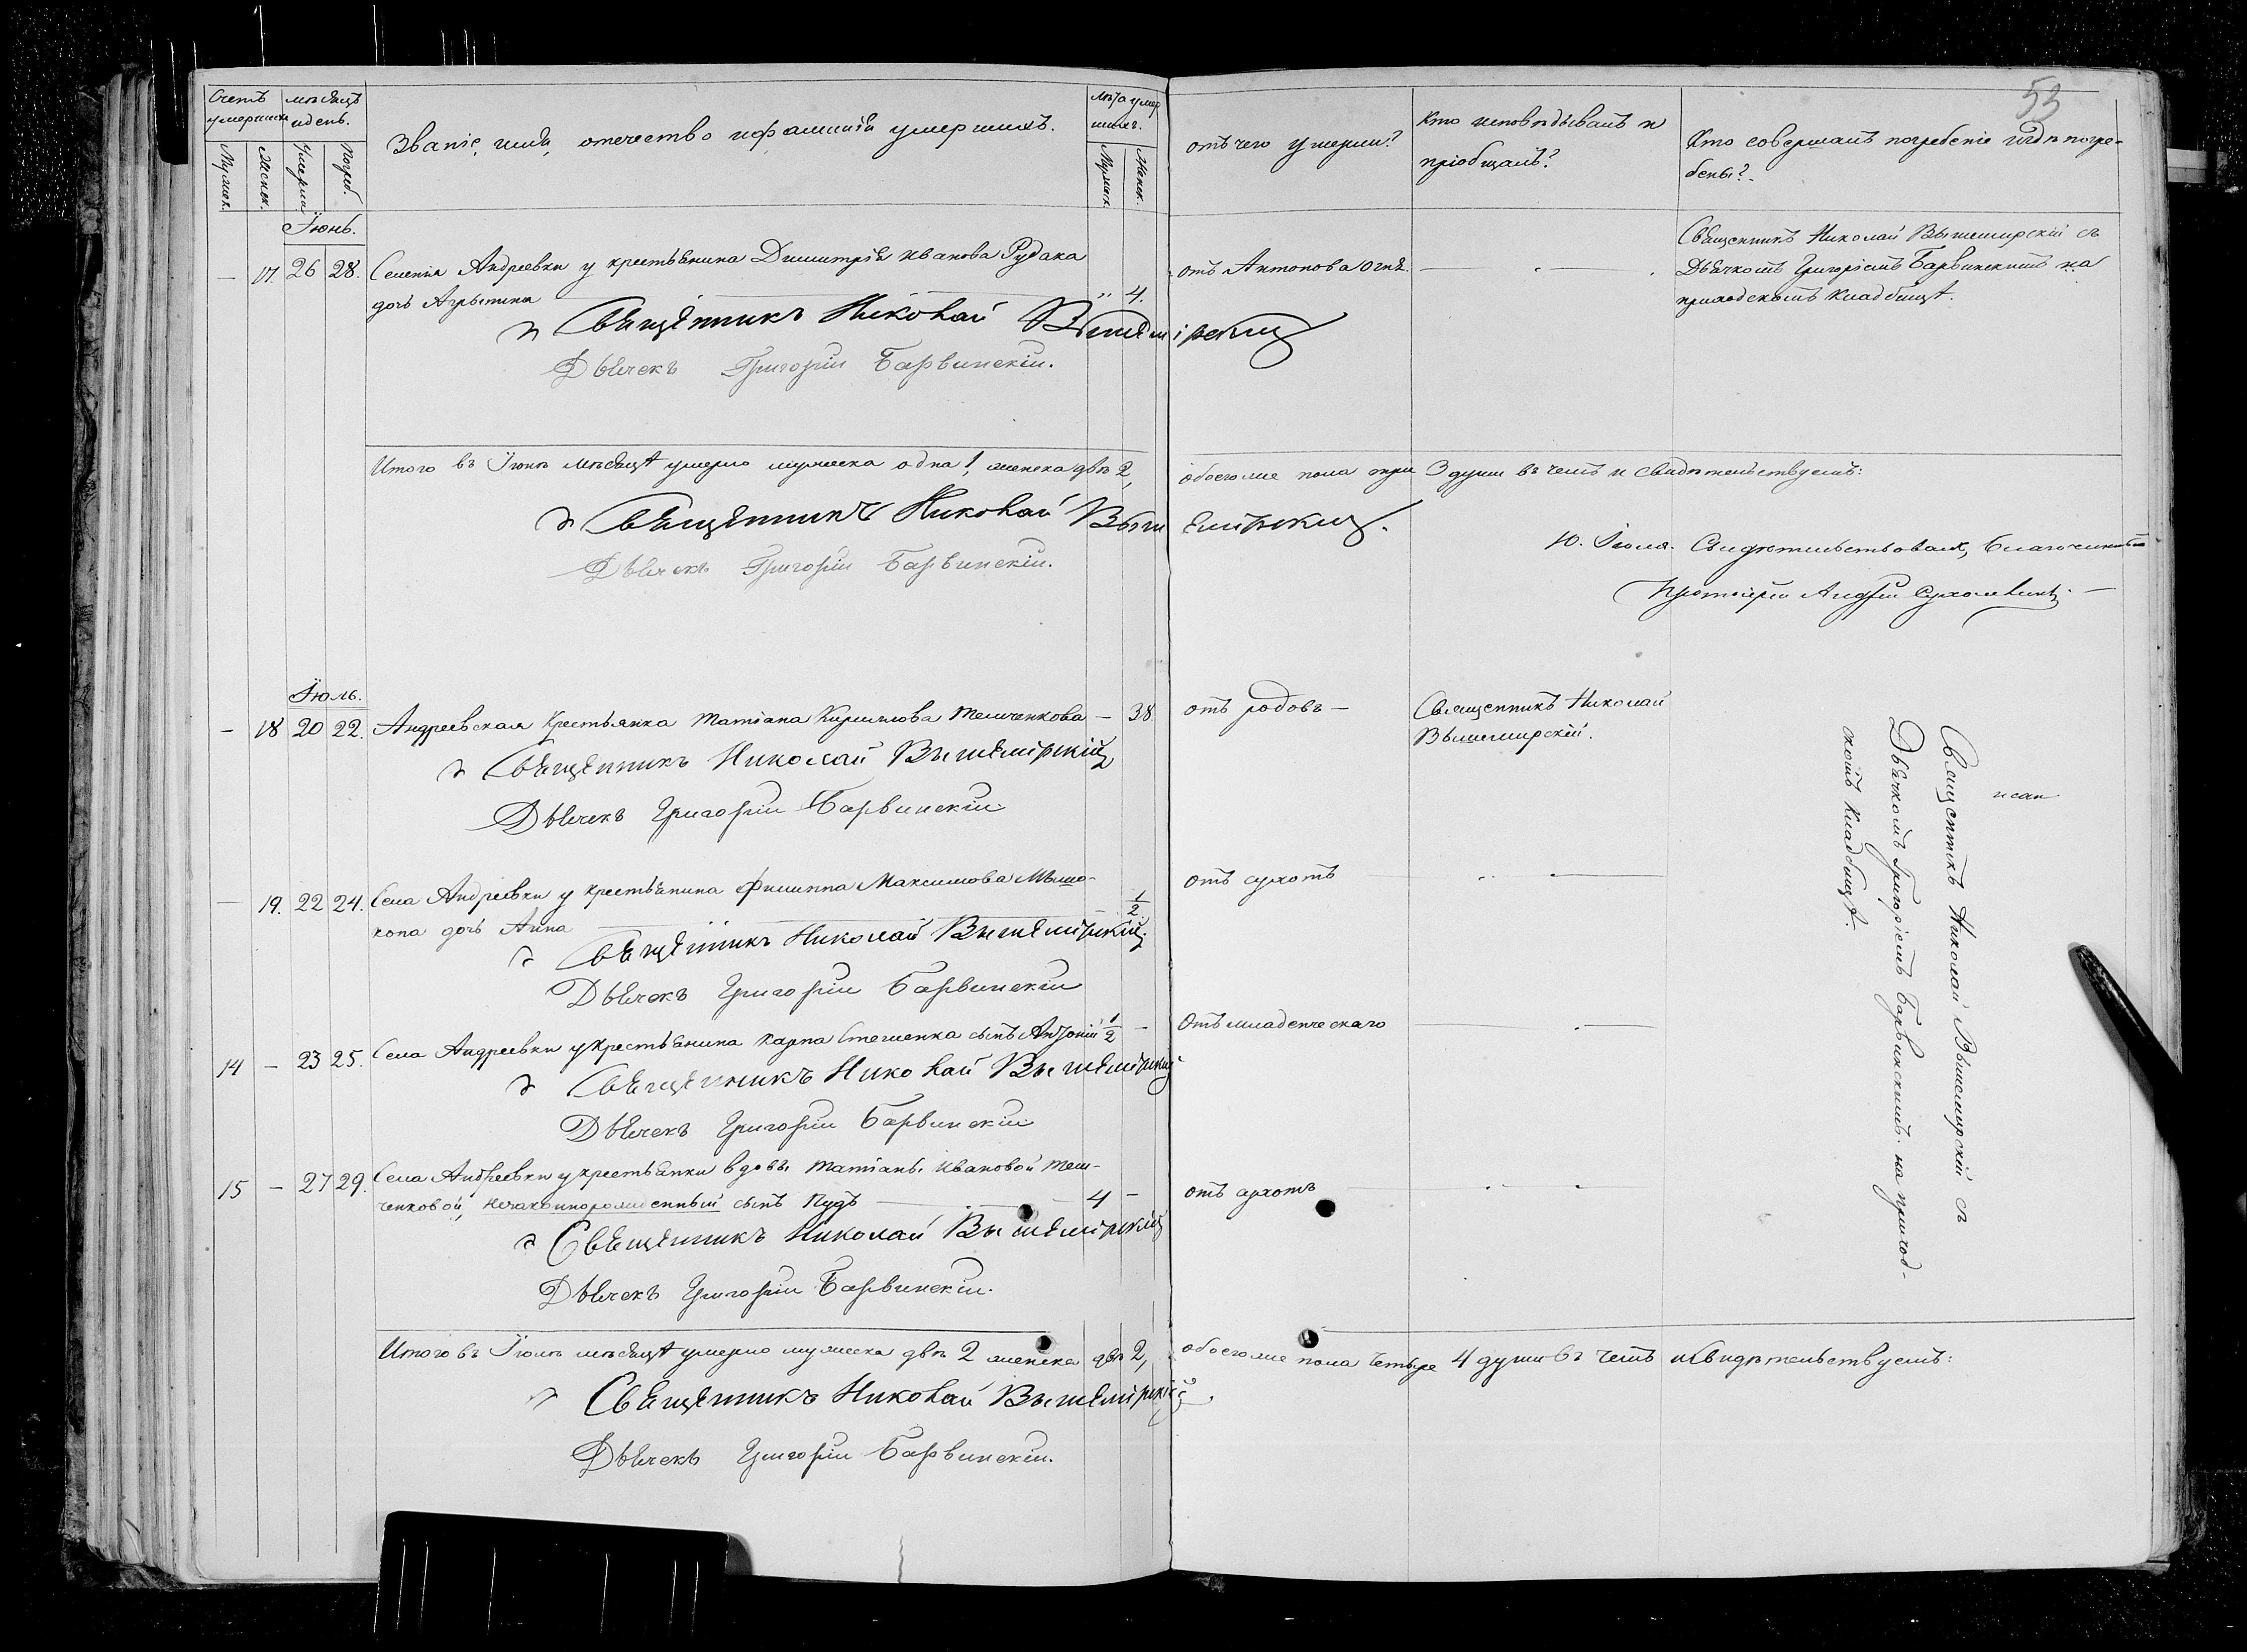 53
Счетъ умершихъ
мѣсяцъ и день.
Званіе, имя, отечество и фамилія умершихъ.
лѣта умершихъ.
отъ чего умерли?
Кто исповѣдывалъ и
пріобщалъ?
Кто совершалъ погребеніе и гдѣ погре-
бены?
Мужск.
Женск.
Умерли
Погреб.
Мужск.
Женск.
Іюнь.
— 17. 26 28. Селенія Андреевки у крестьянина Димитрія Иванова Рудака
дочь Агрыпина — " 4.
отъ Антонова огня.
Священникъ Николай Вышемирскій съ
Дьячкомъ Григоріемъ Барвинскимъ на
приходскомъ кладбищѣ.
Священникъ Николай Вышемірскій
Дьячекъ Григорій Барвинскій.
Итого въ Іюнѣ мѣсяцѣ умерло мужеска одна 1, женска двѣ 2, обоего же пола три 3 души въ чемъ и свидѣтельствуемъ:
Священникъ Николай Вышемірскій.
Дьячекъ Григорій Барвинскій.
10. Іюля. Свидѣтельствовалъ, Благочинный
Протоіерей Андрей
Іюль.
— 18 20 22. Андреевская крестьянка Татіана Кирилова Темченкова — 38
отъ родовъ —
Священникъ Николай
Вышемирскій.
Священникъ Николай Вышемірскій
Дьячекъ Григорій Барвинскій
— 19. 22 24. Села Андреевки у крестьянина Филиппа Максимова Мышо-
копа дочь Анна — 1/2.
отъ сухотъ
Священникъ Николай Вышемірскій
Дьячекъ Григорій Барвинскій
14 — 23 25. Села Андреевки у крестьянина Карпа Стешенка сынъ Антоній 1/2 —
Отъ младенческаго
Священникъ Николай Вышемірскій
Дьячекъ Григорій Барвинскій
15 — 27 29. Села Андреевки у крестьянки вдовы Татіаны Ивановой Тем-
ченковой, незаконнорожденный сынъ Пудъ — 4 —
отъ сухотъ
Священникъ Николай Вышемірскій
Дьячекъ Григорій Барвинскій.
Священникъ Николай Вышемирскій съ
Дьячкомъ Григоріемъ Барвинскимъ на приход-
скомъ кладбищѣ.
Итого въ Іюлѣ мѣсяцѣ умерло мужеска двѣ 2 женска двѣ 2, обоего же пола четыре 4 души въ чемъ и свидѣтельствуемъ:
Священникъ Николай Вышемірскій.
Дьячекъ Григорій Барвинскій.